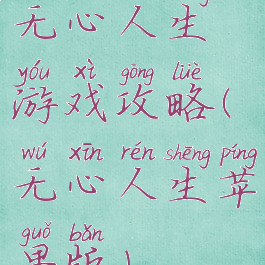 无心人生
yóu xì gōng lüè
游戏攻略(
wú xīn rén shēng píng
无心人生苹
guǒ bǎn
果版)